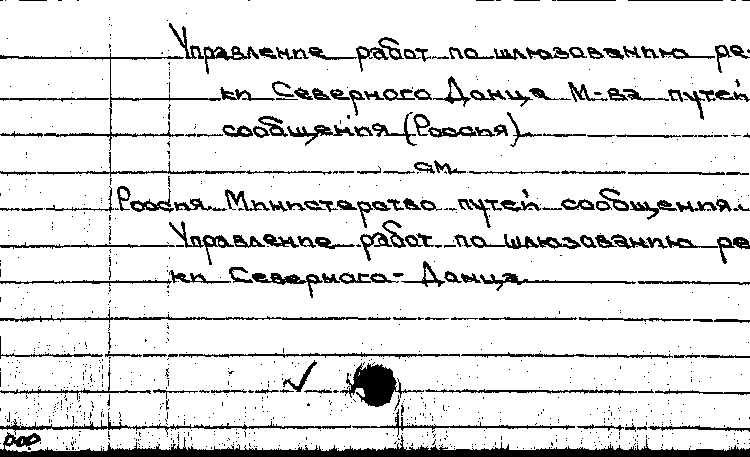 Управление работ по шлюзованию ре-
ки Северного Донца М-ва путей
сообщения (Россия)
см.
Россия. Министерство путей сообщения.
Управление работ по шлюзованию ре
ки Северного-Донца.